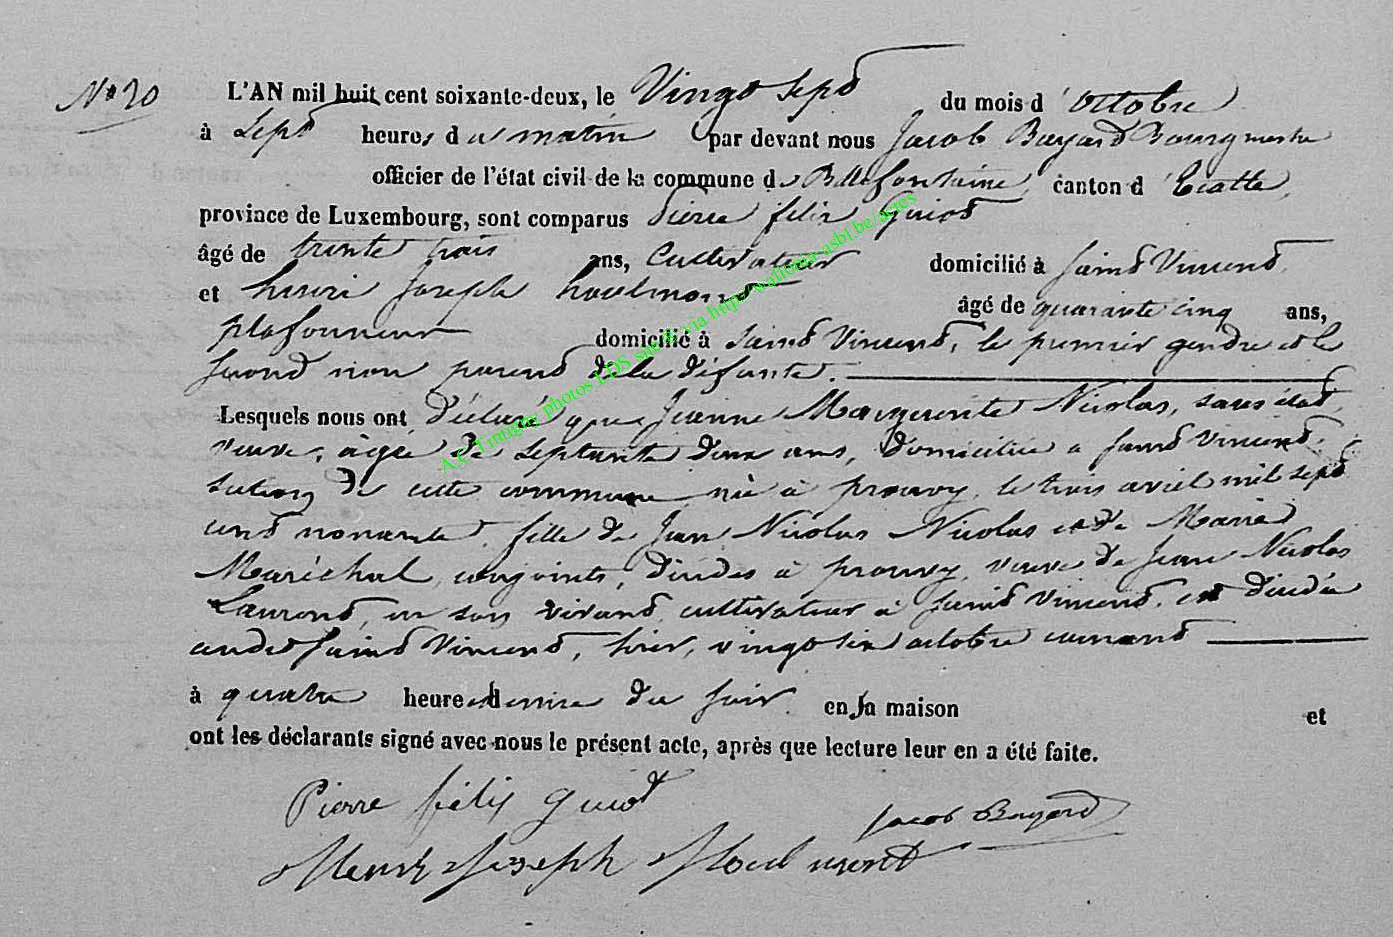 N° 20
L'AN mil huit cent soixante-deux, le Vingt sept du mois d'octobre
à Sept heures du matin par devant nous Jacob Bayard Bourgmestre
officier de l'état civil de la commune de Bellefontaine, canton d'Etalle,
province de Luxembourg, sont comparus Pierre félix Guiot
âgé de trente trois ans, Cultivateur domicilié à Saint Vincent
et henri Joseph houlmont âgé de quarante cinq ans,
plafonneur domicilié à Saint Vincent, le premier gendre et le
second non parent de la défunte.
Lesquels nous ont déclaré que Jeanne Marguerite Nicolas, sans état,
veuve, âgée de septante deux ans, domiciliée à Saint Vincent,
section de cette commune née à prouvy, le trois avril mil sept
cent nonante, fille de Jean Nicolas Nicolas et de Marie
Maréchal, conjoints, décédés à prouvy, veuve de Jean Nicolas
Laurent, en son vivant cultivateur à Saint Vincent, est décédée
audit Saint Vincent, hier, vingt six octobre courant
à quatre heures et demie du soir en sa maison et
ont les déclarants signé avec nous le présent acte, après que lecture leur en a été faite.
Pierre félix guiot
Jacob Bayard
Henri Joseph Houlmont
A.C. Tintigny photos LDS saisie via http://wallonia-asbl.be/actes